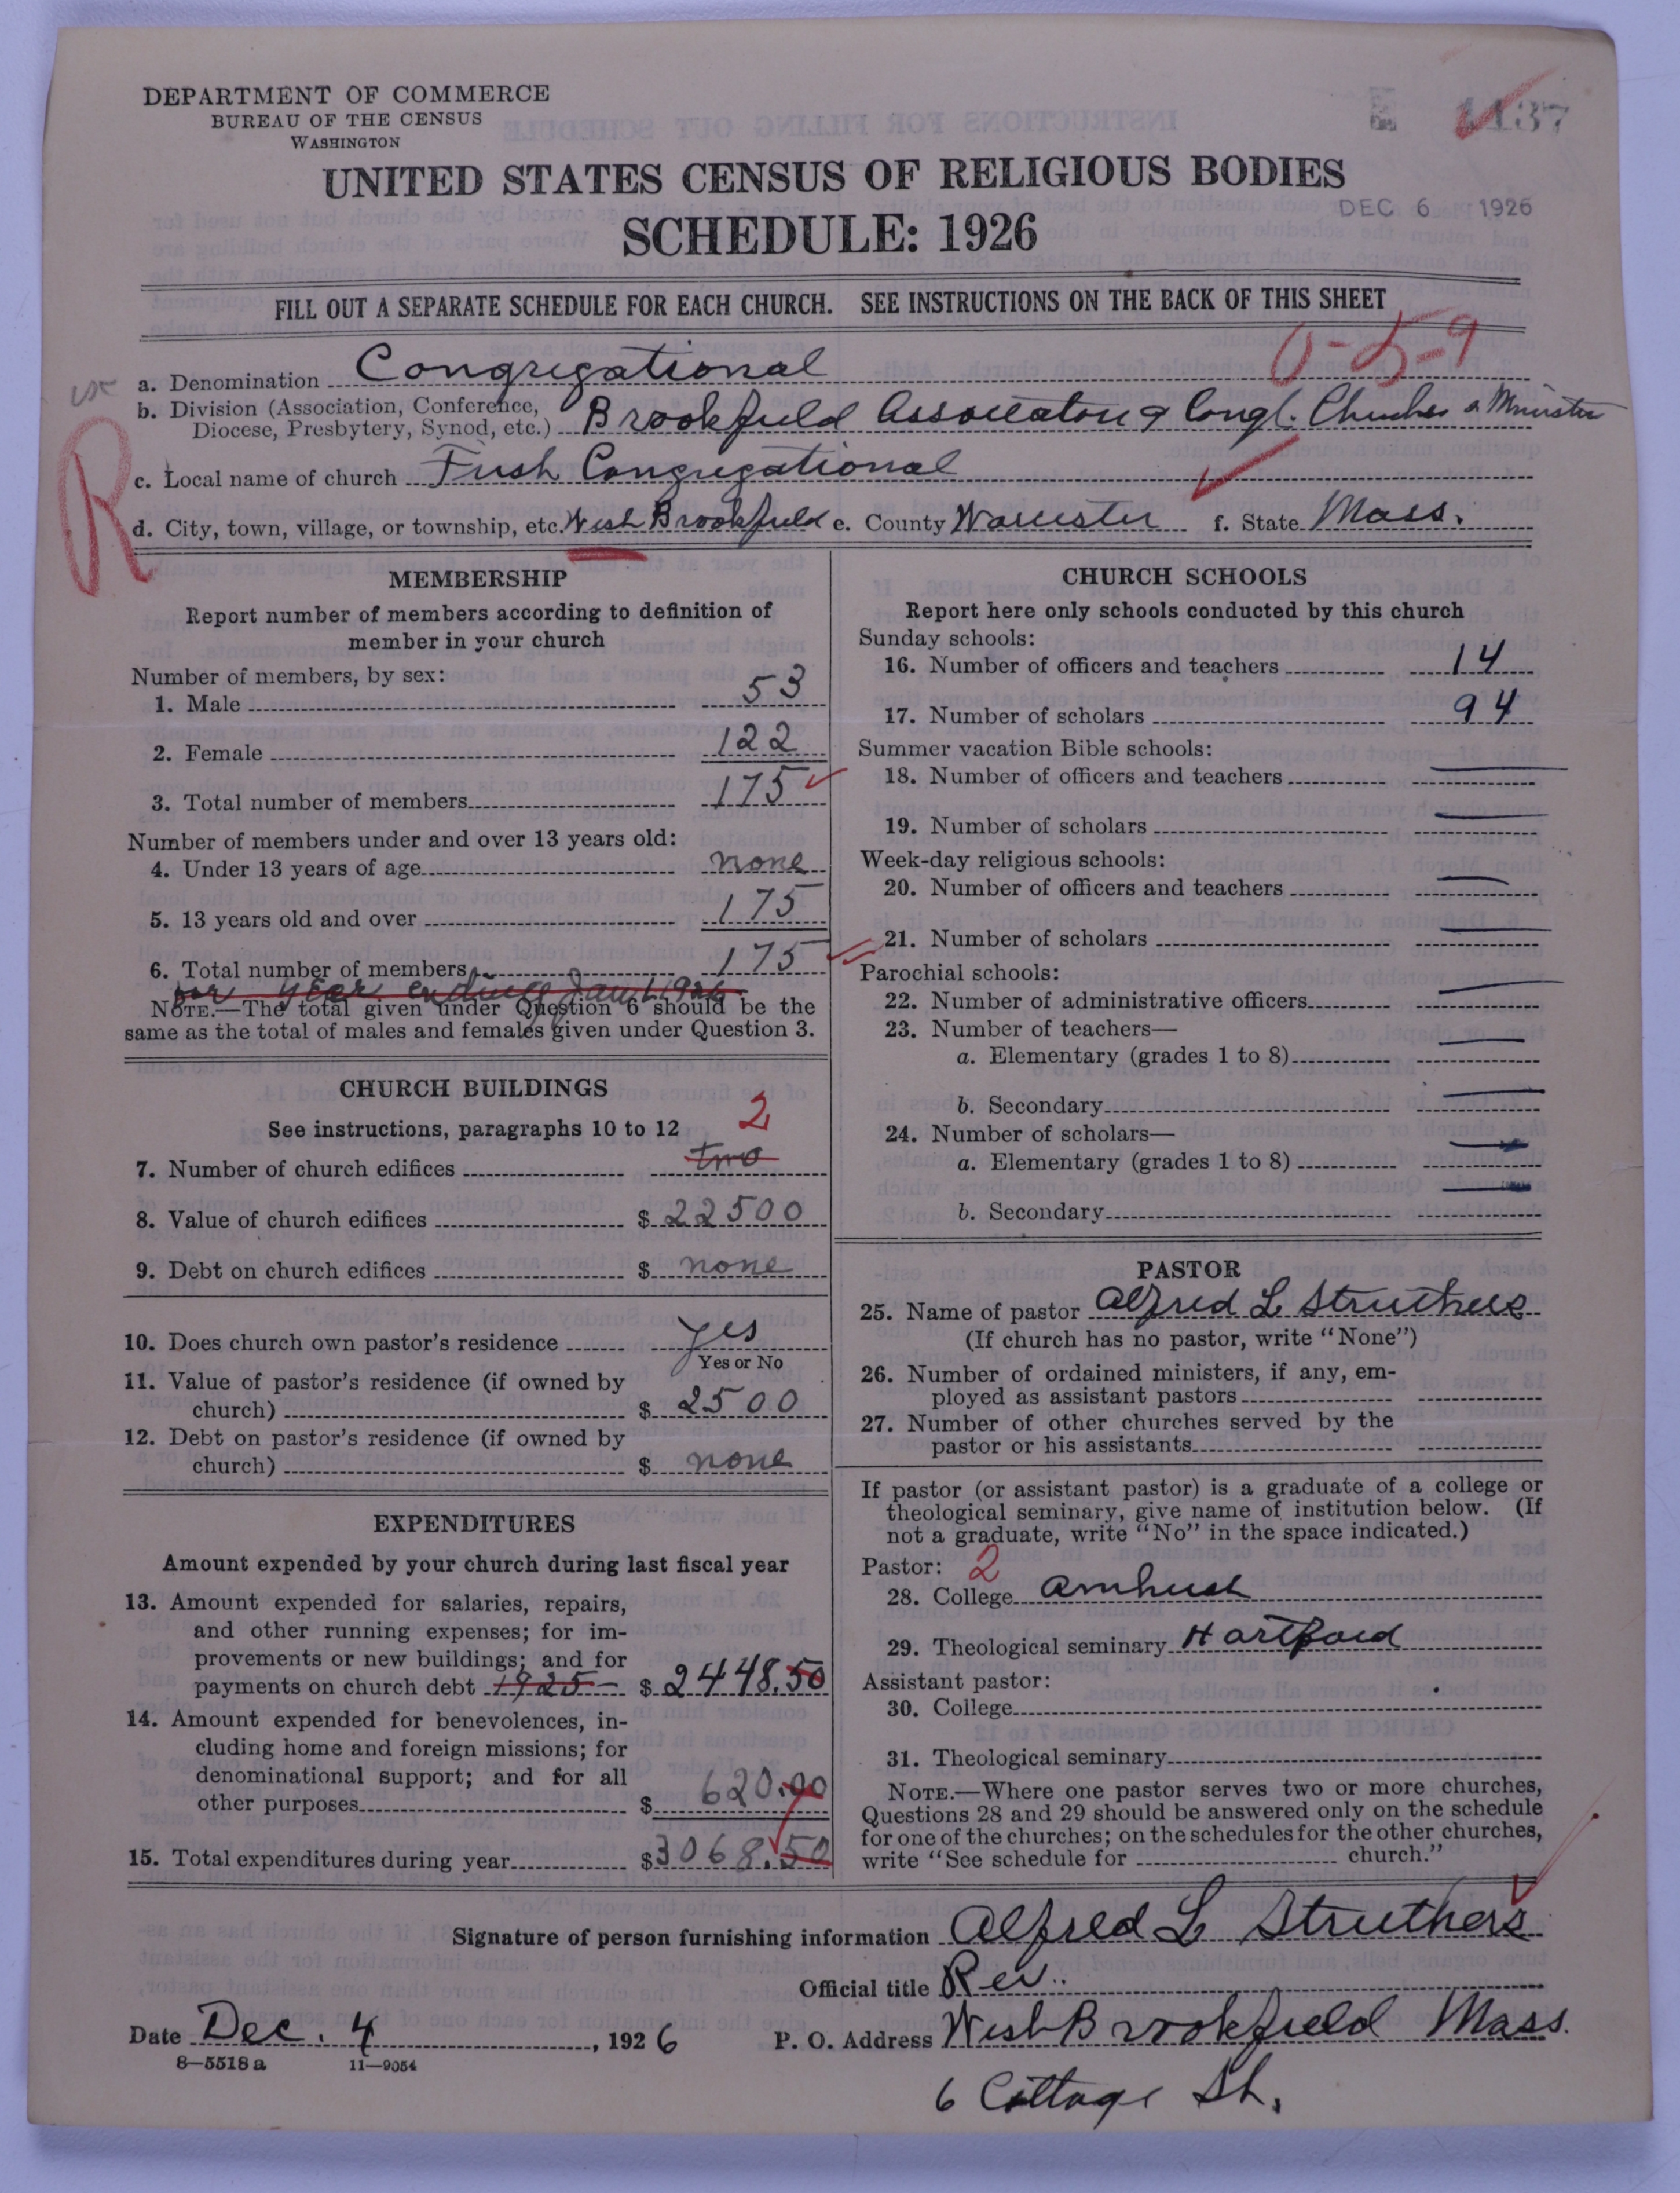 DEPARTMENT OF COMMERCE
BUREAU OF THE CENSUS
WASHINGTON
1137
UNITED STATES CENSUS OF RELIGIOUS BODIES
DEC 6 1926
SCHEDULE: 1926
FILL OUT A SEPARATE SCHEDULE FOR EACH CHURCH. SEE INSTRUCTIONS ON THE BACK OF THIS SHEET
0-5-9
a. Denomination Congregational
b. Division (Association, Conference, Diocese, Presbytery, Synod, etc.) Brookfield Association of Congl. Churches & Minister
R
c. Local name of church First Congregational
d. City, town, village, or township, etc. West Brookfield e. County Worcester f. State Mass.
MEMBERSHIP
Report number of members according to definition of
member in your church
Number of members, by sex:
1. Male 53
2. Female 122
3. Total number of members 175
Number of members under and over 13 years old:
4. Under 13 years of age none
5. 13 years old and over 175
6. Total number of members 175
for year ending Jan 1, 1926
NOTE.—The total given under Question 6 should be the
same as the total of males and females given under Question 3.
CHURCH BUILDINGS
See instructions, paragraphs 10 to 12
2
7. Number of church edifices two
8. Value of church edifices $ 22500
9. Debt on church edifices $ none
10. Does church own pastor's residence yes
Yes or No
11. Value of pastor's residence (if owned by
church) $ 2500
12. Debt on pastor's residence (if owned by
church) $ none
EXPENDITURES
Amount expended by your church during last fiscal year
13. Amount expended for salaries, repairs,
and other running expenses; for im-
provements or new buildings; and for
payments on church debt 1925 $ 2448.50
14. Amount expended for benevolences, in-
cluding home and foreign missions; for
denominational support; and for all
other purposes $ 620.00
15. Total expenditures during year $ 3068.50
CHURCH SCHOOLS
Report here only schools conducted by this church
Sunday schools:
16. Number of officers and teachers 14
17. Number of scholars 94
Summer vacation Bible schools:
18. Number of officers and teachers
19. Number of scholars
Week-day religious schools:
20. Number of officers and teachers
21. Number of scholars
Parochial schools:
22. Number of administrative officers
23. Number of teachers—
a. Elementary (grades 1 to 8)
b. Secondary
24. Number of scholars—
a. Elementary (grades 1 to 8)
b. Secondary
PASTOR
25. Name of pastor Alfred L Struthers
(If church has no pastor, write "None")
26. Number of ordained ministers, if any, em-
ployed as assistant pastors
27. Number of other churches served by the
pastor or his assistants
If pastor (or assistant pastor) is a graduate of a college or
theological seminary, give name of institution below. (If
not a graduate, write "No" in the space indicated.)
Pastor: 2
28. College Amherst
29. Theological seminary Hartford
Assistant pastor:
30. College
31. Theological seminary
NOTE.—Where one pastor serves two or more churches,
Questions 28 and 29 should be answered only on the schedule
for one of the churches; on the schedules for the other churches,
write "See schedule for church."
Signature of person furnishing information Alfred L Struthers
Official title Rev.
Date Dec. 4, 1926 P. O. Address West Brookfield Mass.
8—5518 a 11—9054
6 Cottage St.